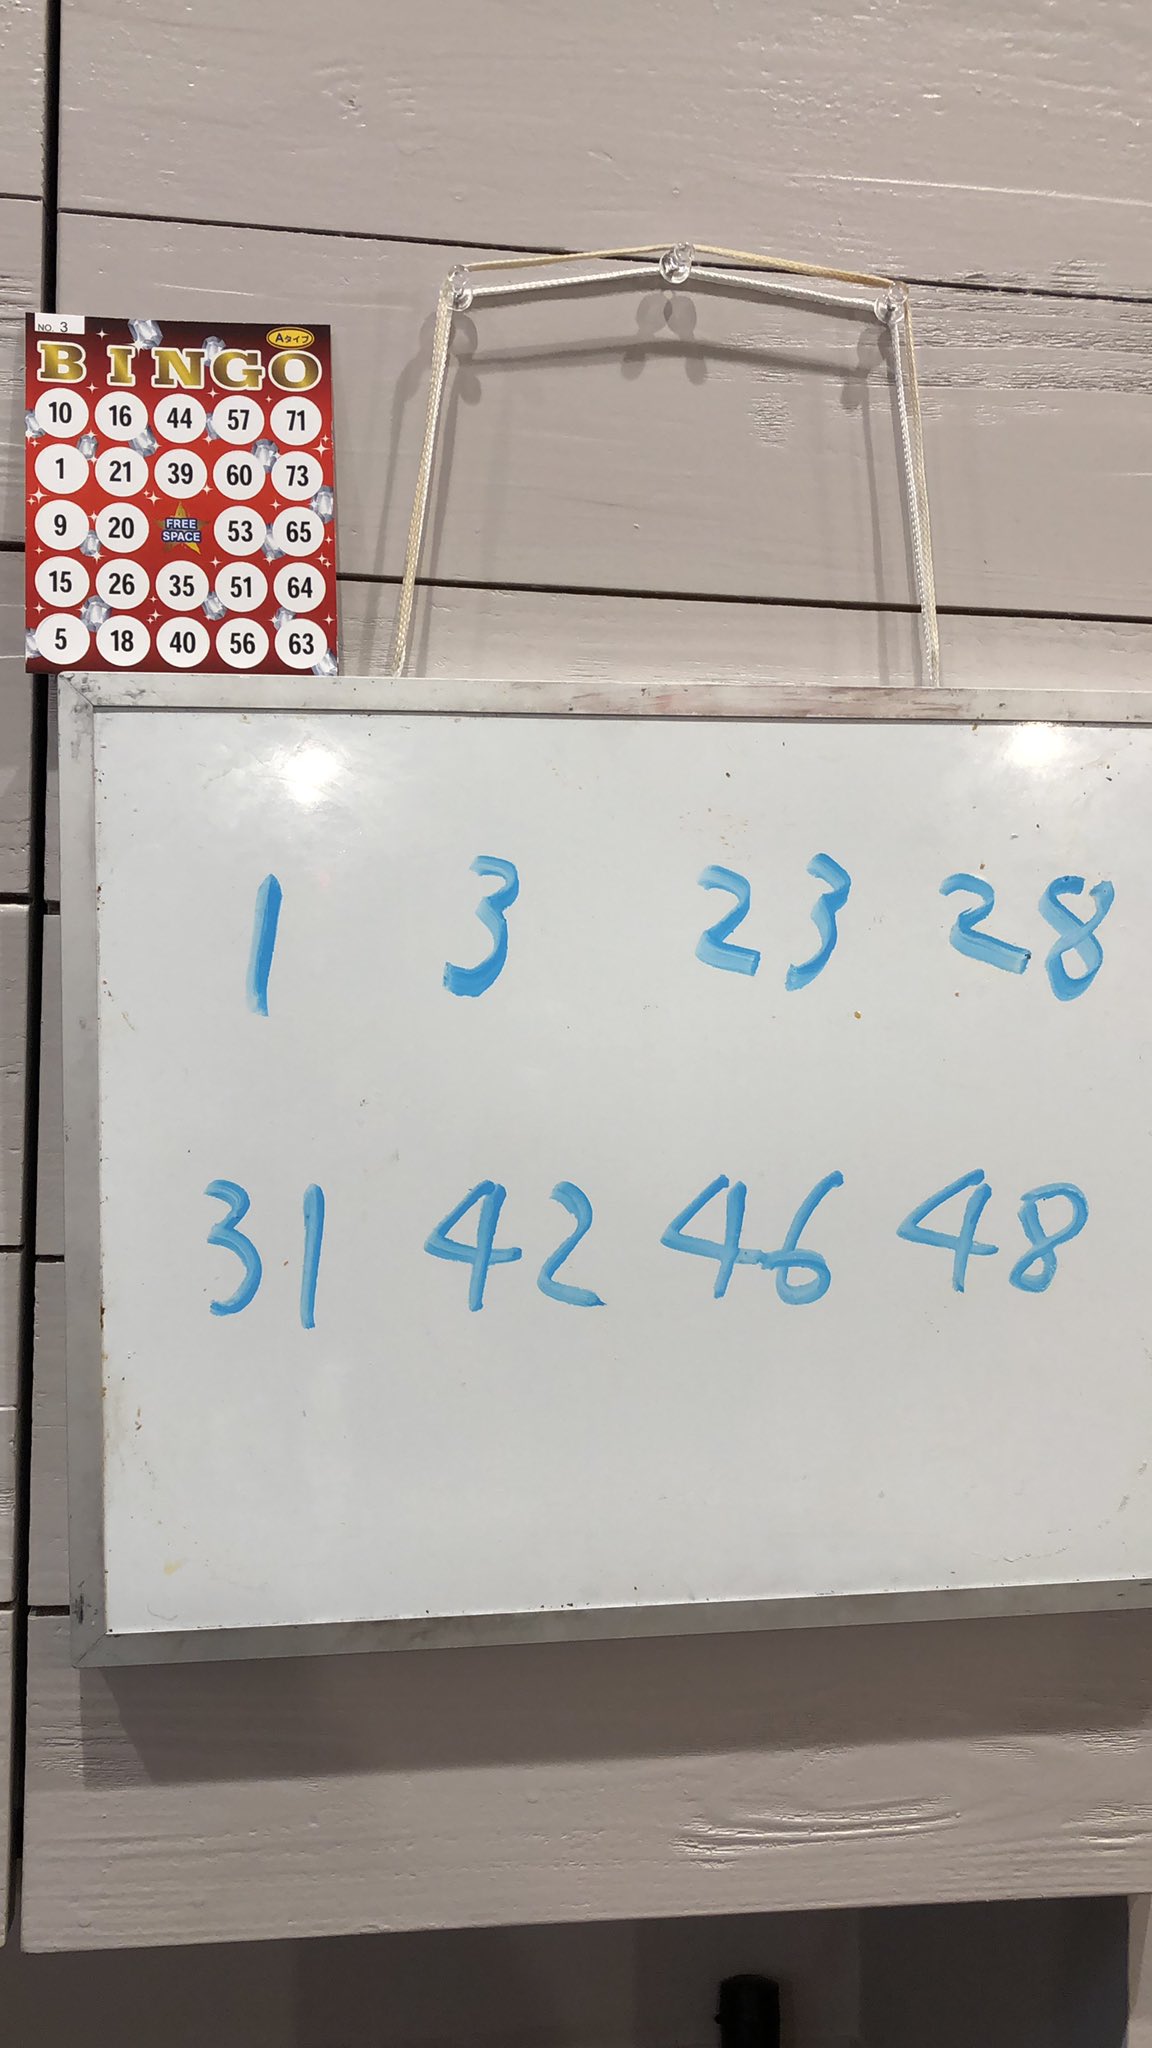 NO. 3
Aタイプ
BINGO
10 16 44 57 71
1 21 39 60 73
9 20 FREE SPACE 53 65
15 26 35 51 64
5 18 40 56 63
1 3 23 28
31 42 46 48